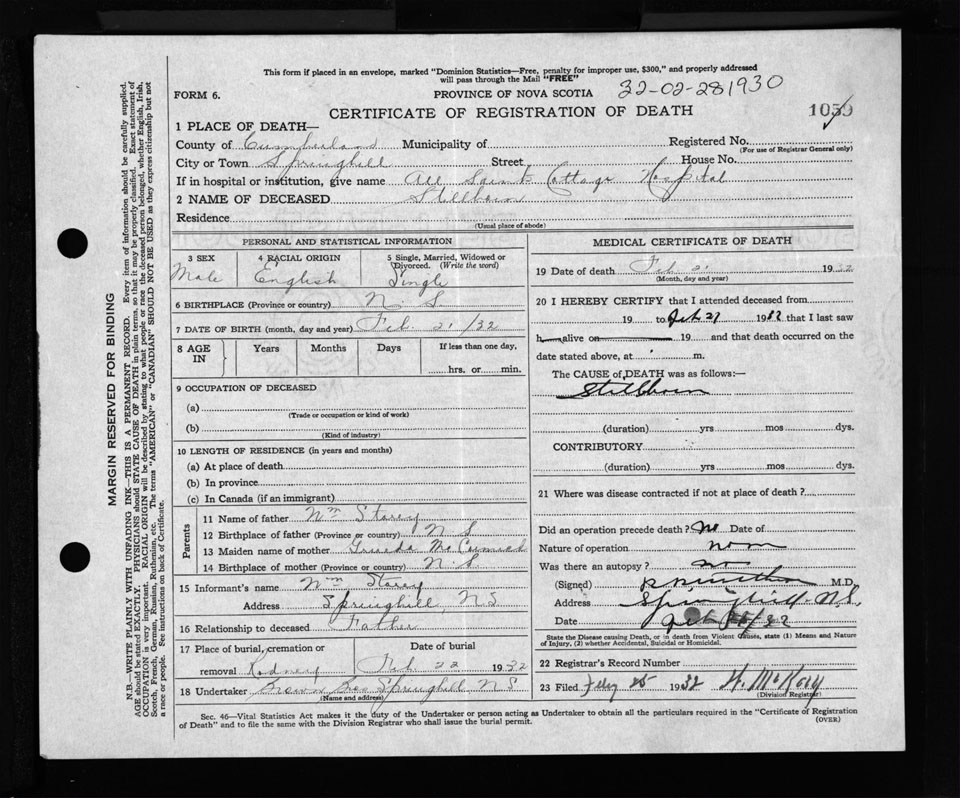 This form if placed in an envelope, marked "Dominion Statistics—Free, penalty for improper use, $300," and properly addressed
will pass through the Mail "FREE"
FORM 6.
PROVINCE OF NOVA SCOTIA
32-02-281930
CERTIFICATE OF REGISTRATION OF DEATH
1059
1 PLACE OF DEATH—
County of Cumberland Municipality of Registered No.
(For use of Registrar General only)
City or Town Springhill Street House No.
If in hospital or institution, give name All Saints Cottage Hospital
2 NAME OF DECEASED Stillborn
Residence
(Usual place of abode)
PERSONAL AND STATISTICAL INFORMATION
3 SEX
Male
4 RACIAL ORIGIN
English
5 Single, Married, Widowed or
Divorced. (Write the word)
Single
6 BIRTHPLACE (Province or country) N. S
7 DATE OF BIRTH (month, day and year) Feb. 21/32
8 AGE
IN
Years Months Days If less than one day,
hrs. or min.
9 OCCUPATION OF DECEASED
(a)
(Trade or occupation or kind of work)
(b)
(Kind of industry)
10 LENGTH OF RESIDENCE (in years and months)
(a) At place of death
(b) In province
(c) In Canada (if an immigrant)
Parents
11 Name of father Wm Storey
12 Birthplace of father (Province or country) N S
13 Maiden name of mother McCormick
14 Birthplace of mother (Province or country) N. S.
15 Informant's name Wm Storey
Address Springhill, N S
16 Relationship to deceased Father
17 Place of burial, cremation or Date of burial
removal Rodney Feb 22 1932
18 Undertaker Brown Bros Springhill N S
(Name and address)
MEDICAL CERTIFICATE OF DEATH
19 Date of death Feb 21 1932
(Month, day and year)
20 I HEREBY CERTIFY that I attended deceased from
19 to Feb 21 1932 that I last saw
h alive on 19 and that death occurred on the
date stated above, at m.
The CAUSE of DEATH was as follows:—
Stillborn
(duration) yrs mos dys.
CONTRIBUTORY
(duration) yrs mos dys.
21 Where was disease contracted if not at place of death?
Did an operation precede death? no Date of
Nature of operation
Was there an autopsy? no
(Signed) M.D.
Address Springhill N.S.
Date
State the Disease causing Death, or in death from Violent Causes, state (1) Means and Nature
of Injury, (2) whether Accidental, Suicidal or Homicidal.
22 Registrar's Record Number
23 Filed Feby 25 1932 H. McKay
(Division Registrar)
Sec. 46—Vital Statistics Act makes it the duty of the Undertaker or person acting as Undertaker to obtain all the particulars required in the "Certificate of Registration
of Death" and to file the same with the Division Registrar who shall issue the burial permit. (OVER)
MARGIN RESERVED FOR BINDING
N.B.—WRITE PLAINLY WITH UNFADING INK—THIS IS A PERMANENT RECORD. Every item of information should be carefully supplied.
AGE should be stated EXACTLY. PHYSICIANS should STATE CAUSE OF DEATH in plain terms, so that it may be properly classified. Exact statement of
OCCUPATION is very important. RACIAL ORIGIN will be described by stating to what people or race the deceased person belonged, whether English, Irish,
Scotch, French, German, Russian, Ruthenian, etc. The terms "AMERICAN" or "CANADIAN" SHOULD NOT BE USED as they express citizenship but not
a race or people. See instructions on back of Certificate.